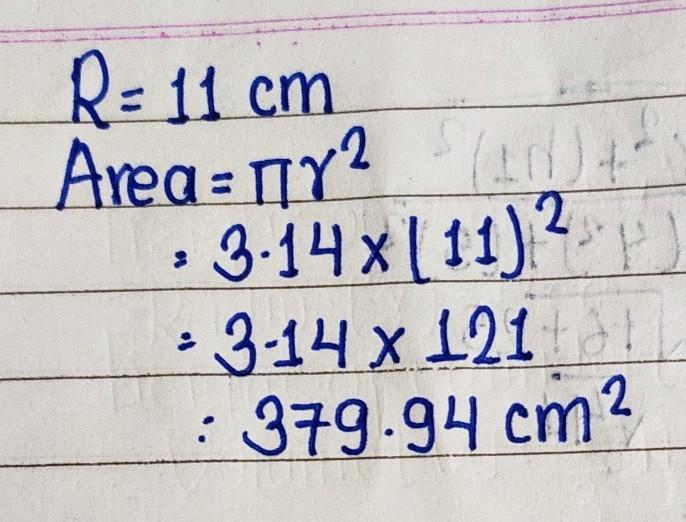 R = 11 cm
Area = πr²
= 3.14 x (11)²
= 3.14 x 121
= 379.94 cm²